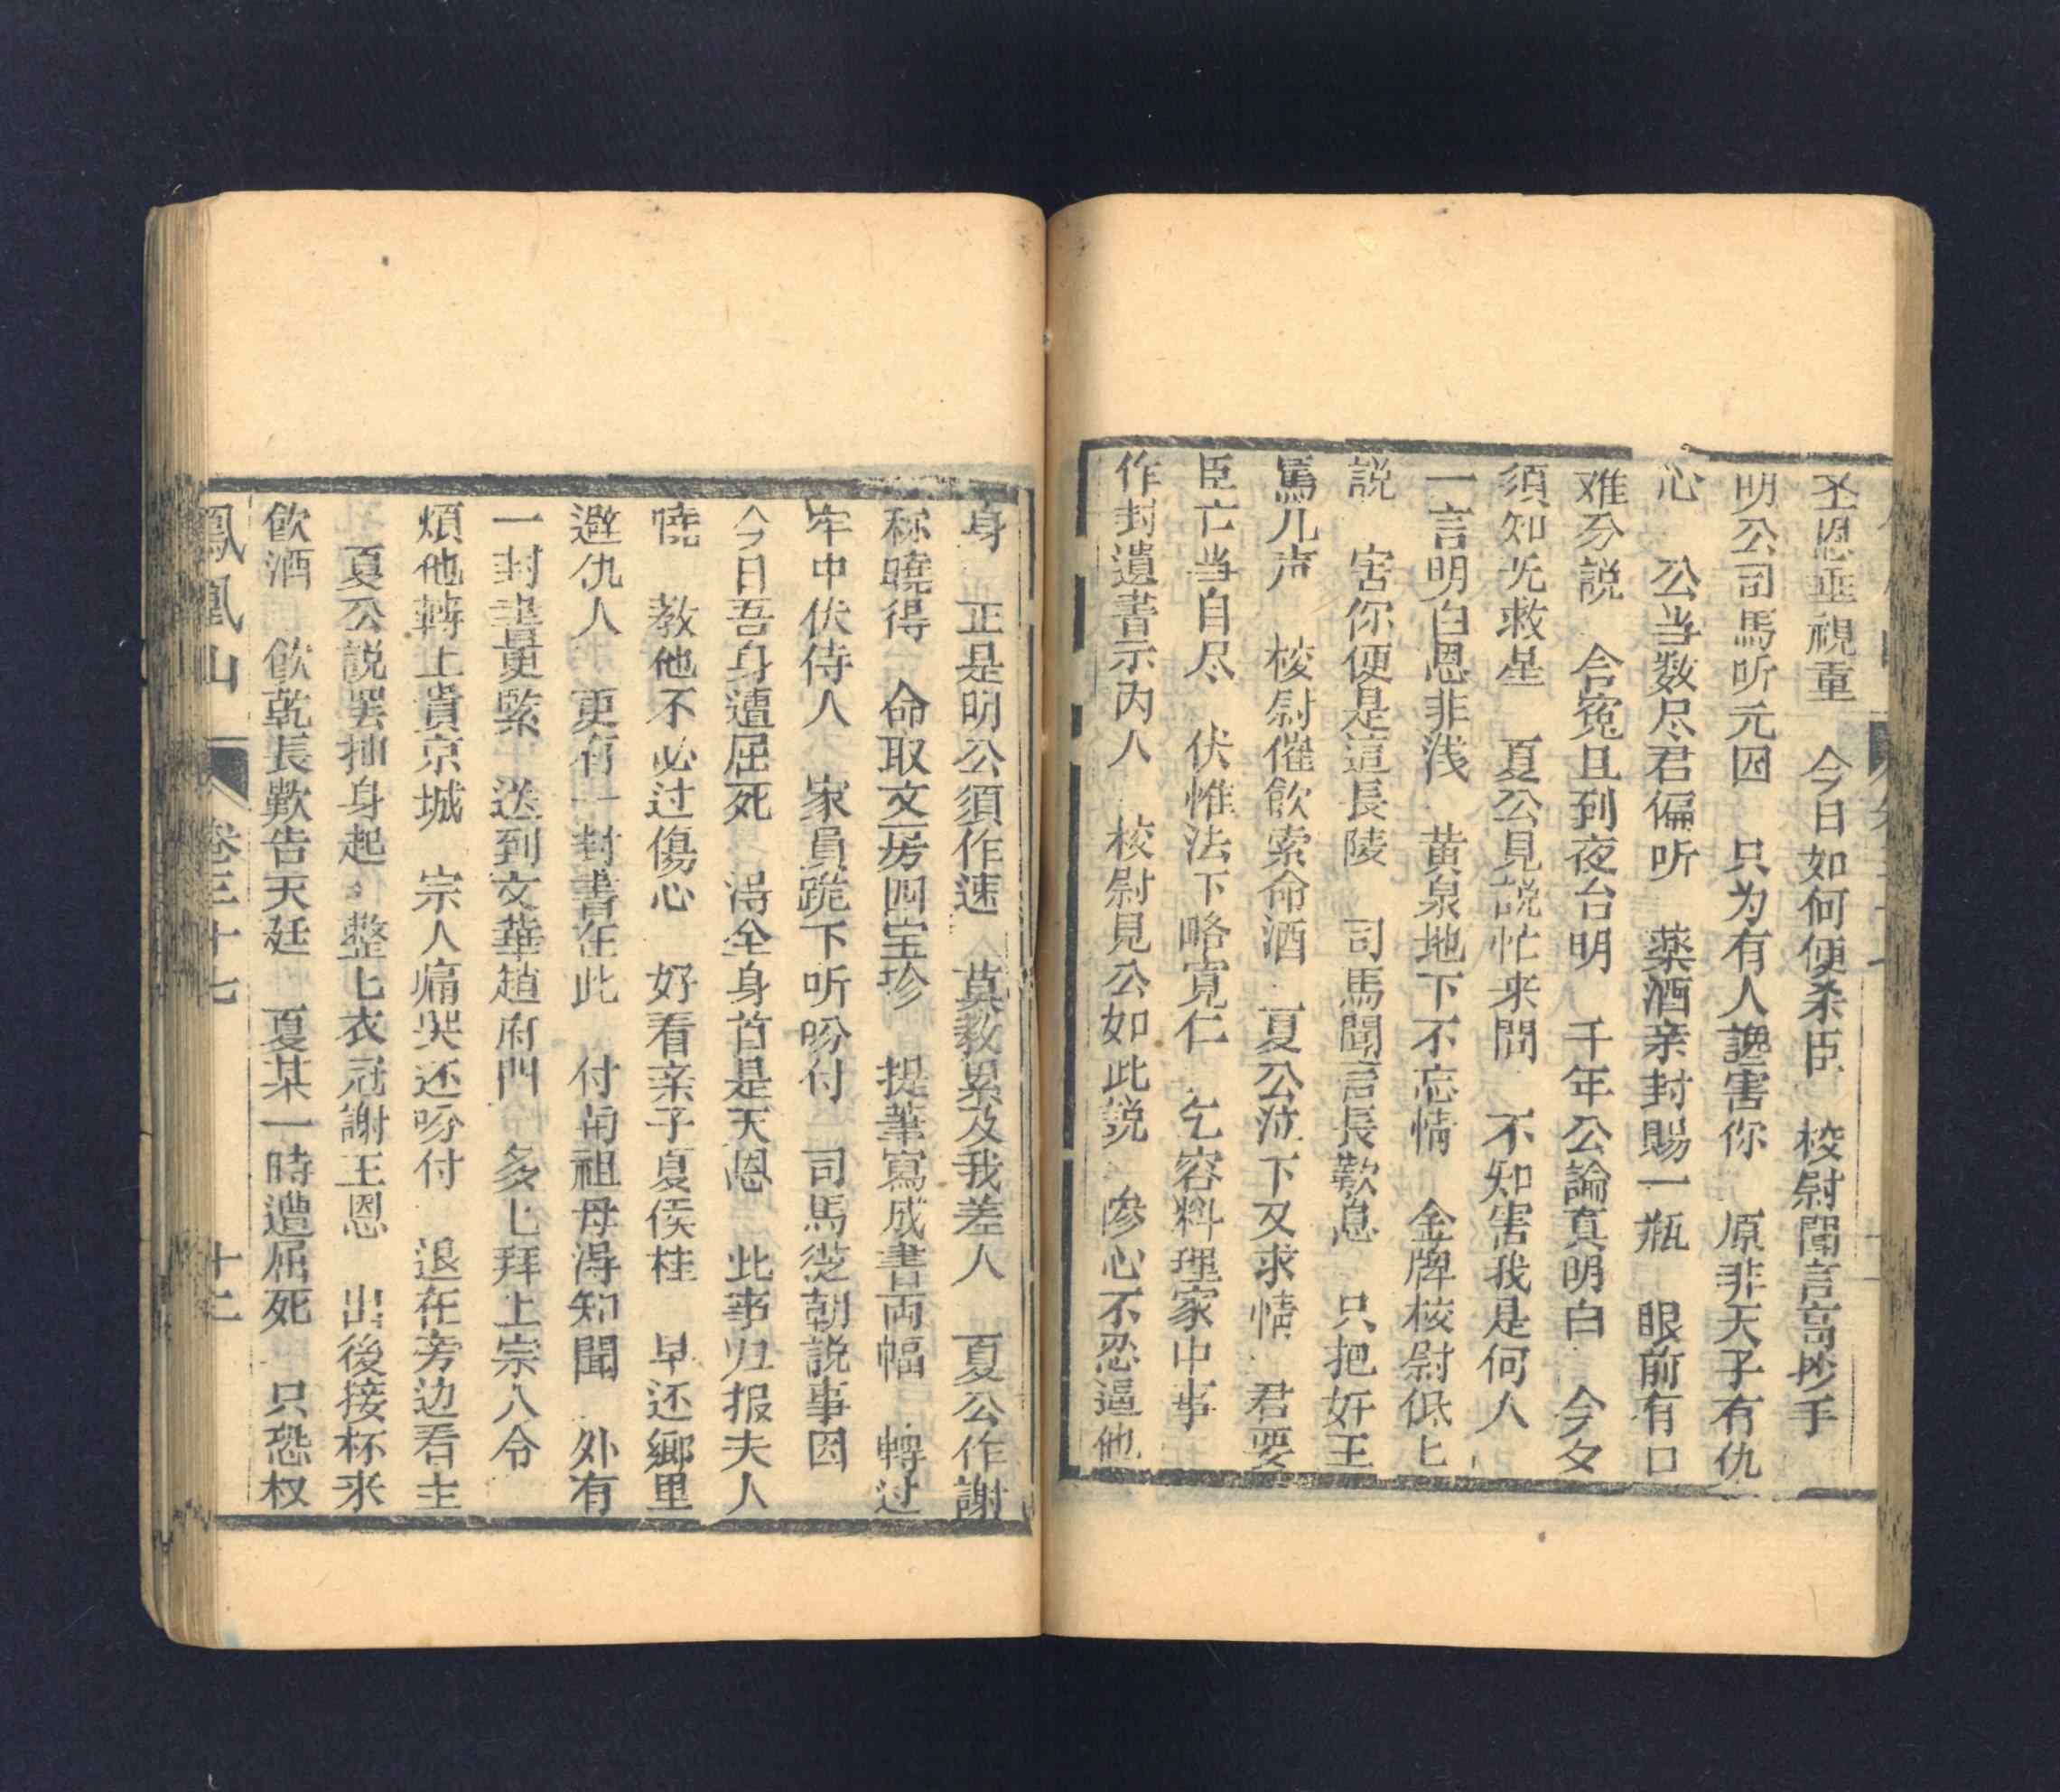 圣恩垂視重　今日如何便杀臣　校尉聞言高抄手
明公司馬听元因　只为有人讒害你　原非天子有仇
心　公当数尽君偏听　薬酒亲封賜一瓶　眼前有口
难分説　含冤且到夜台明　千年公論真明白　今夕
須知无救星　夏公見説忙来問　不知害我是何人
一言明白恩非浅　黄泉地下不忘情　金牌校尉低七
説　害你便是這長陵　司馬聞言長歎息　只把奸王
罵几声　校尉催飲索命酒　夏公泣下又求情　君要
臣亡当自尽　伏惟法下略寬仁　乞容料理家中事
作封遺書示内人　校尉見公如此説　惨心不忍逼他
身　正是明公須作速　莫教累及我差人　夏公作謝
称曉得　命取文房四宝珍　提筆寫成書両幅　轉过
牢中伏侍人　家員跪下听吩付　司馬從朝説事因
今日吾身遭屈死　得全身首是天恩　此事归报夫人
曉　教他不必过傷心　好看亲子夏侯桂　早还鄉里
避仇人　更有一封書在此　付甪祖母得知聞　外有
一封書最更緊　送到文華趙府門　多七拜上宗八令
煩他轉上貴京城　宗人痛哭还吩付　退在旁边看主
夏公説罢抽身起　整七衣冠謝王恩　出後接杯来
飲酒　飲乾長歎告天廷　夏某一時遭屈死　只恐权
鳳凰山　卷三十七　十二